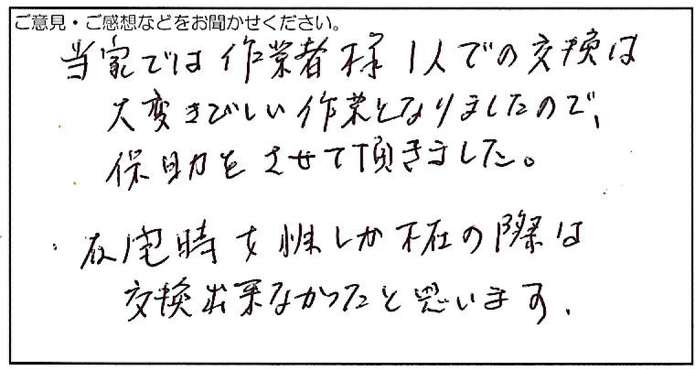 ご意見・ご感想などをお聞かせください。
当家では作業者様1人での交換は
大変きびしい作業となりましたので、
保助をさせて頂きました。
在宅時女性しか不在の際は
交換出来なかったと思います.